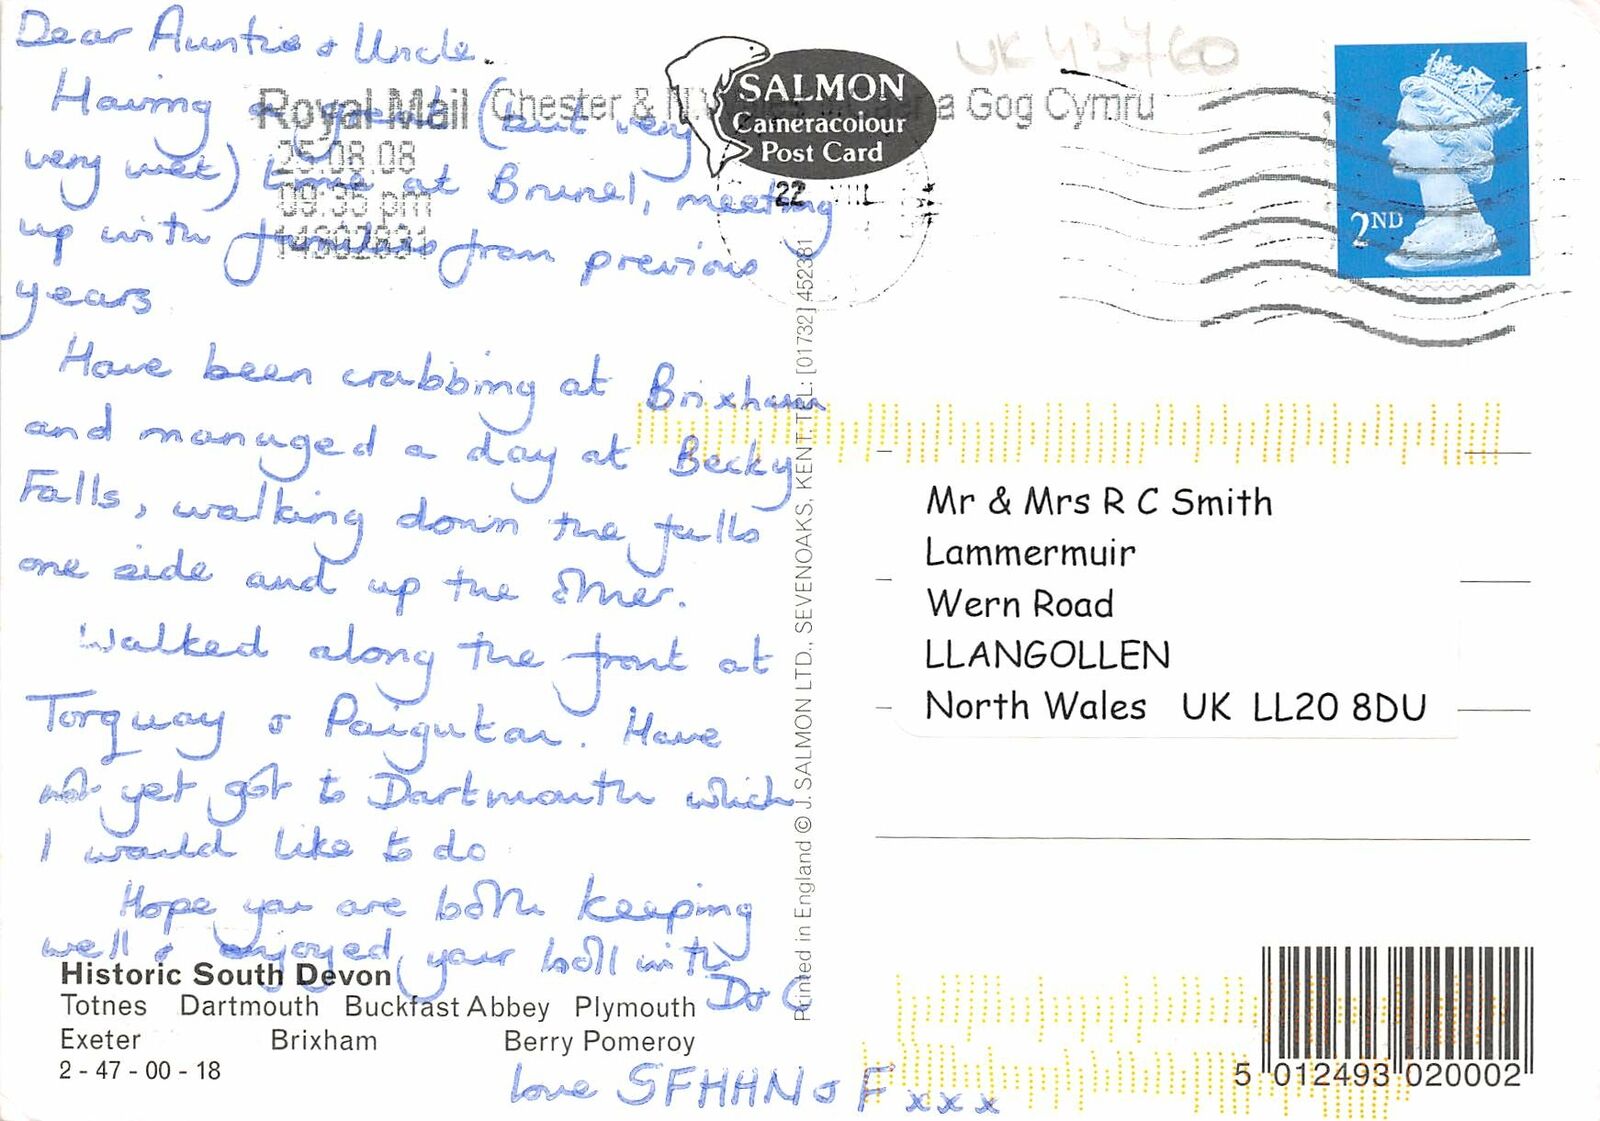 Dear Auntie & Uncle.
Having a great (but very
very wet) time at Brunel, meeting
up with families from previous
years
Have been crabbing at Brixham
and managed a day at Becky
Falls, walking down the falls
one side and up the other.
Walked along the front at
Torquay & Paiguton. Have
not yet got to Dartmouth which
I would like to do
Hope you are both keeping
well & enjoyed your hol with
D & C
love SFHHN & F xxx
Historic South Devon
Totnes Dartmouth Buckfast Abbey Plymouth
Exeter Brixham Berry Pomeroy
2 - 47 - 00 - 18
Royal Mail Chester & N. a Gog Cymru
09:35 pm
SALMON
Cameracolour
Post Card
22
UK 43760
2ND
Printed in England © J. SALMON LTD., SEVENOAKS, KENT. TEL: [01732] 452381
Mr & Mrs R C Smith
Lammermuir
Wern Road
LLANGOLLEN
North Wales UK LL20 8DU
5 012493 020002